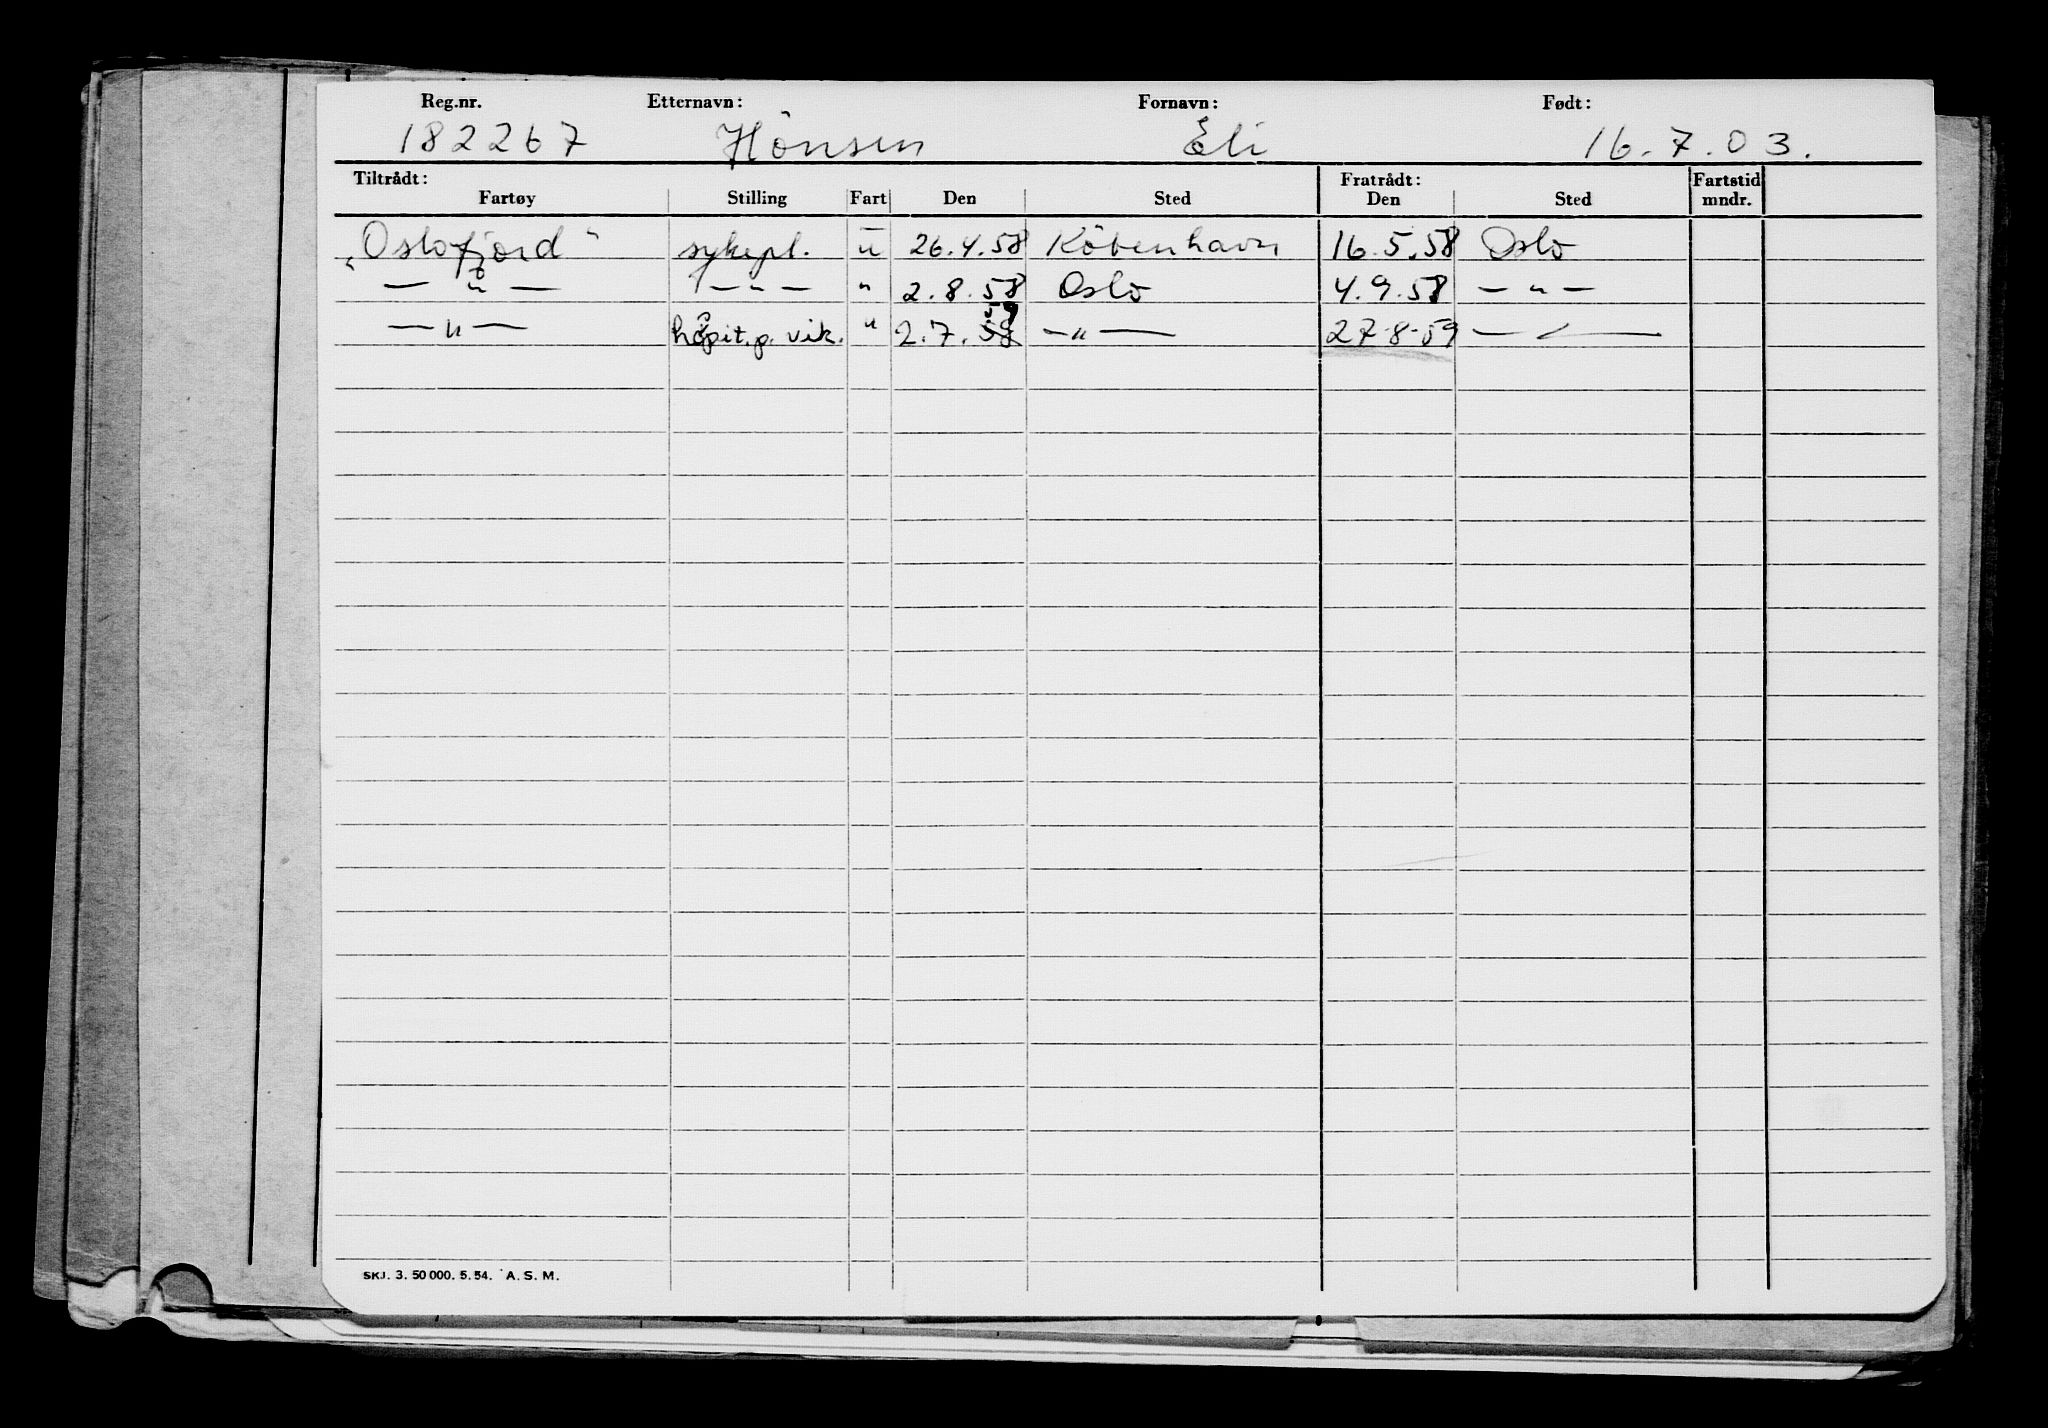 Reg.nr. Etternavn: Fornavn: Født:
182267 Hönsen Eli 16.7.03.
Tiltrådt: Fratrådt: Fartstid
Fartøy Stilling Fart Den Sted Den Sted mndr.
„Oslofjord" sykepl. u 26.4.58 Köbenhavn 16.5.58 Oslo
— " — — " — " 2.8.58 Oslo 4.9.58 — " —
— " — hospit.p. vik. " 2.7.59 — " — 27-8-59 — " —
SKJ. 3. 50 000. 5. 54. A. S. M.